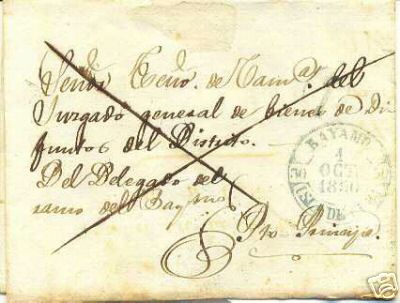 Señor Ten.º de Ram.os del
Juzgado general de bienes de Di
funtos del Distrito.
Del Delegado del
ramo del Bayamo
Pto Principe.
BAYAMO
1
OCT
DE